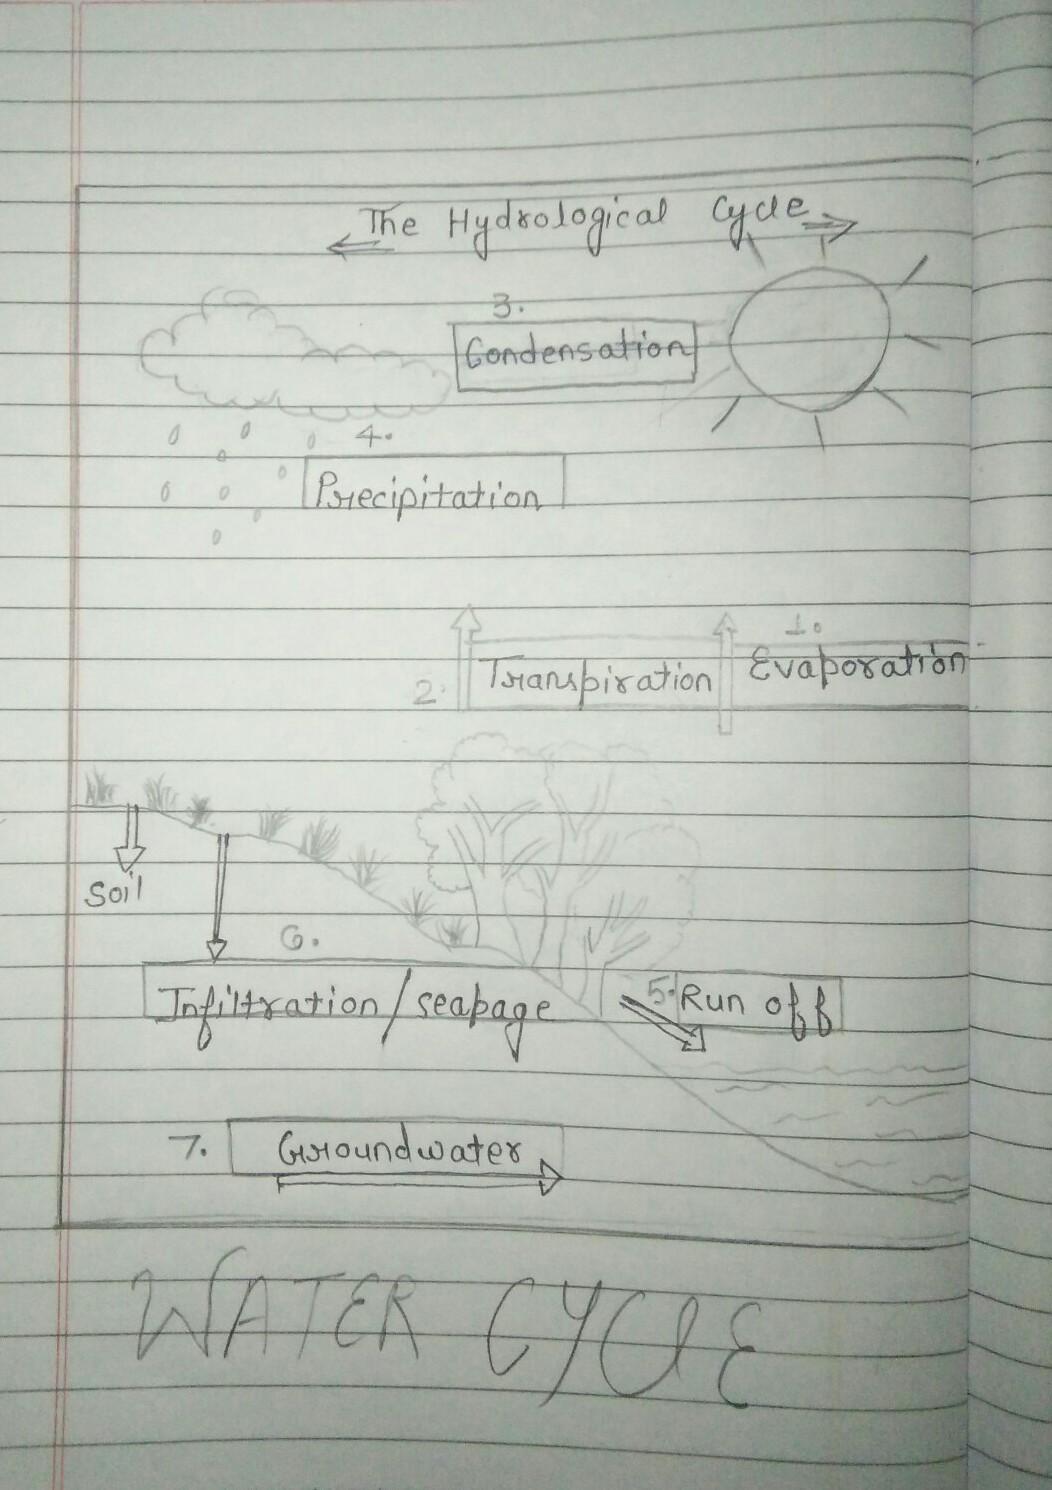 The Hydrological Cycle
3.
Condensation
4.
Precipitation
1.
Evaporation
2. Transpiration
Soil
6.
Infiltration/seapage
5. Run off
7. Groundwater
WATER CYCLE